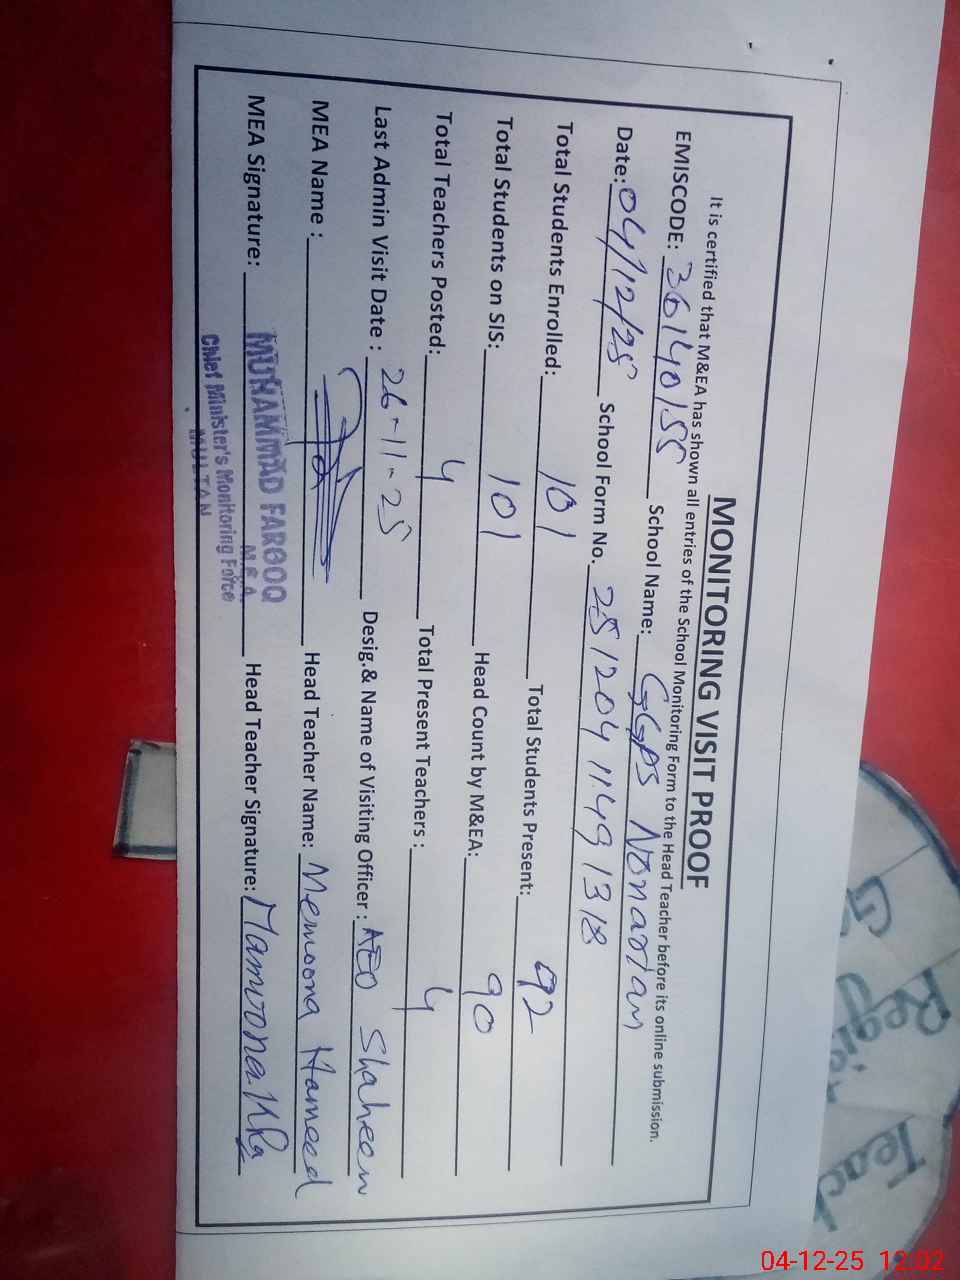 MONITORING VISIT PROOF
It is certified that M&EA has shown all entries of the School Monitoring Form to the Head Teacher before its online submission.
EMISCODE: 36140155 School Name: GGPS
Date: 04/12/25 School Form No. 25120411491318
Total Students Enrolled: 101 Total Students Present: 92
Total Students on SIS: 101 Head Count by M&EA: 90
Total Teachers Posted: 4 Total Present Teachers : 4
Last Admin Visit Date : 26-11-25 Desig.& Name of Visiting Officer : AEO Shaheen
MEA Name : Head Teacher Name: Memoona Hameed
MEA Signature: Head Teacher Signature: Mamoona
MUHAMMAD FAROOQ
M E A
Chief Minister's Monitoring Force
MULTAN
Teach
Regis
04-12-25 12:02